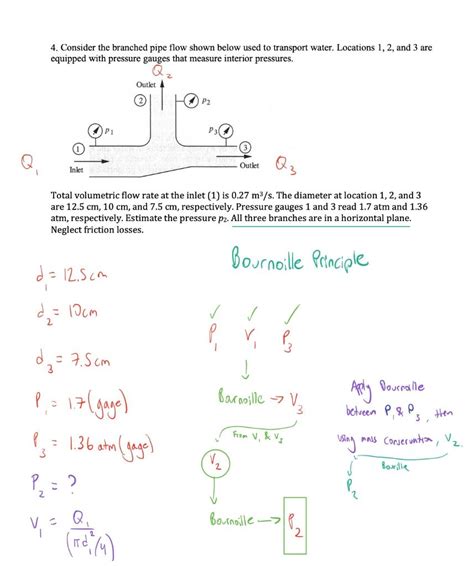 4. Consider the branched pipe flow shown below used to transport water. Locations 1, 2, and 3 are
equipped with pressure gauges that measure interior pressures.
Q2
Outlet
2
P2
P1
P3
1
3
Q1
Inlet
Outlet
Q3
Total volumetric flow rate at the inlet (1) is 0.27 m³/s. The diameter at location 1, 2, and 3
are 12.5 cm, 10 cm, and 7.5 cm, respectively. Pressure gauges 1 and 3 read 1.7 atm and 1.36
atm, respectively. Estimate the pressure p₂. All three branches are in a horizontal plane.
Neglect friction losses.
Bournoille Principle
d1 = 12.5 cm
d2 = 10cm
d3 = 7.5 cm
P1 = 1.7 (gage)
P3 = 1.36 atm (gage)
P2 = ?
V1 = Q1 / (πd1²/4)
✓ ✓ ✓
P1 V1 P3
Barnoille → V3
From V1 & V3
V2
Bournoille → P2
Apply Bournoille
between P1 & P3, then
using mass conservation, V2
Barille
P2